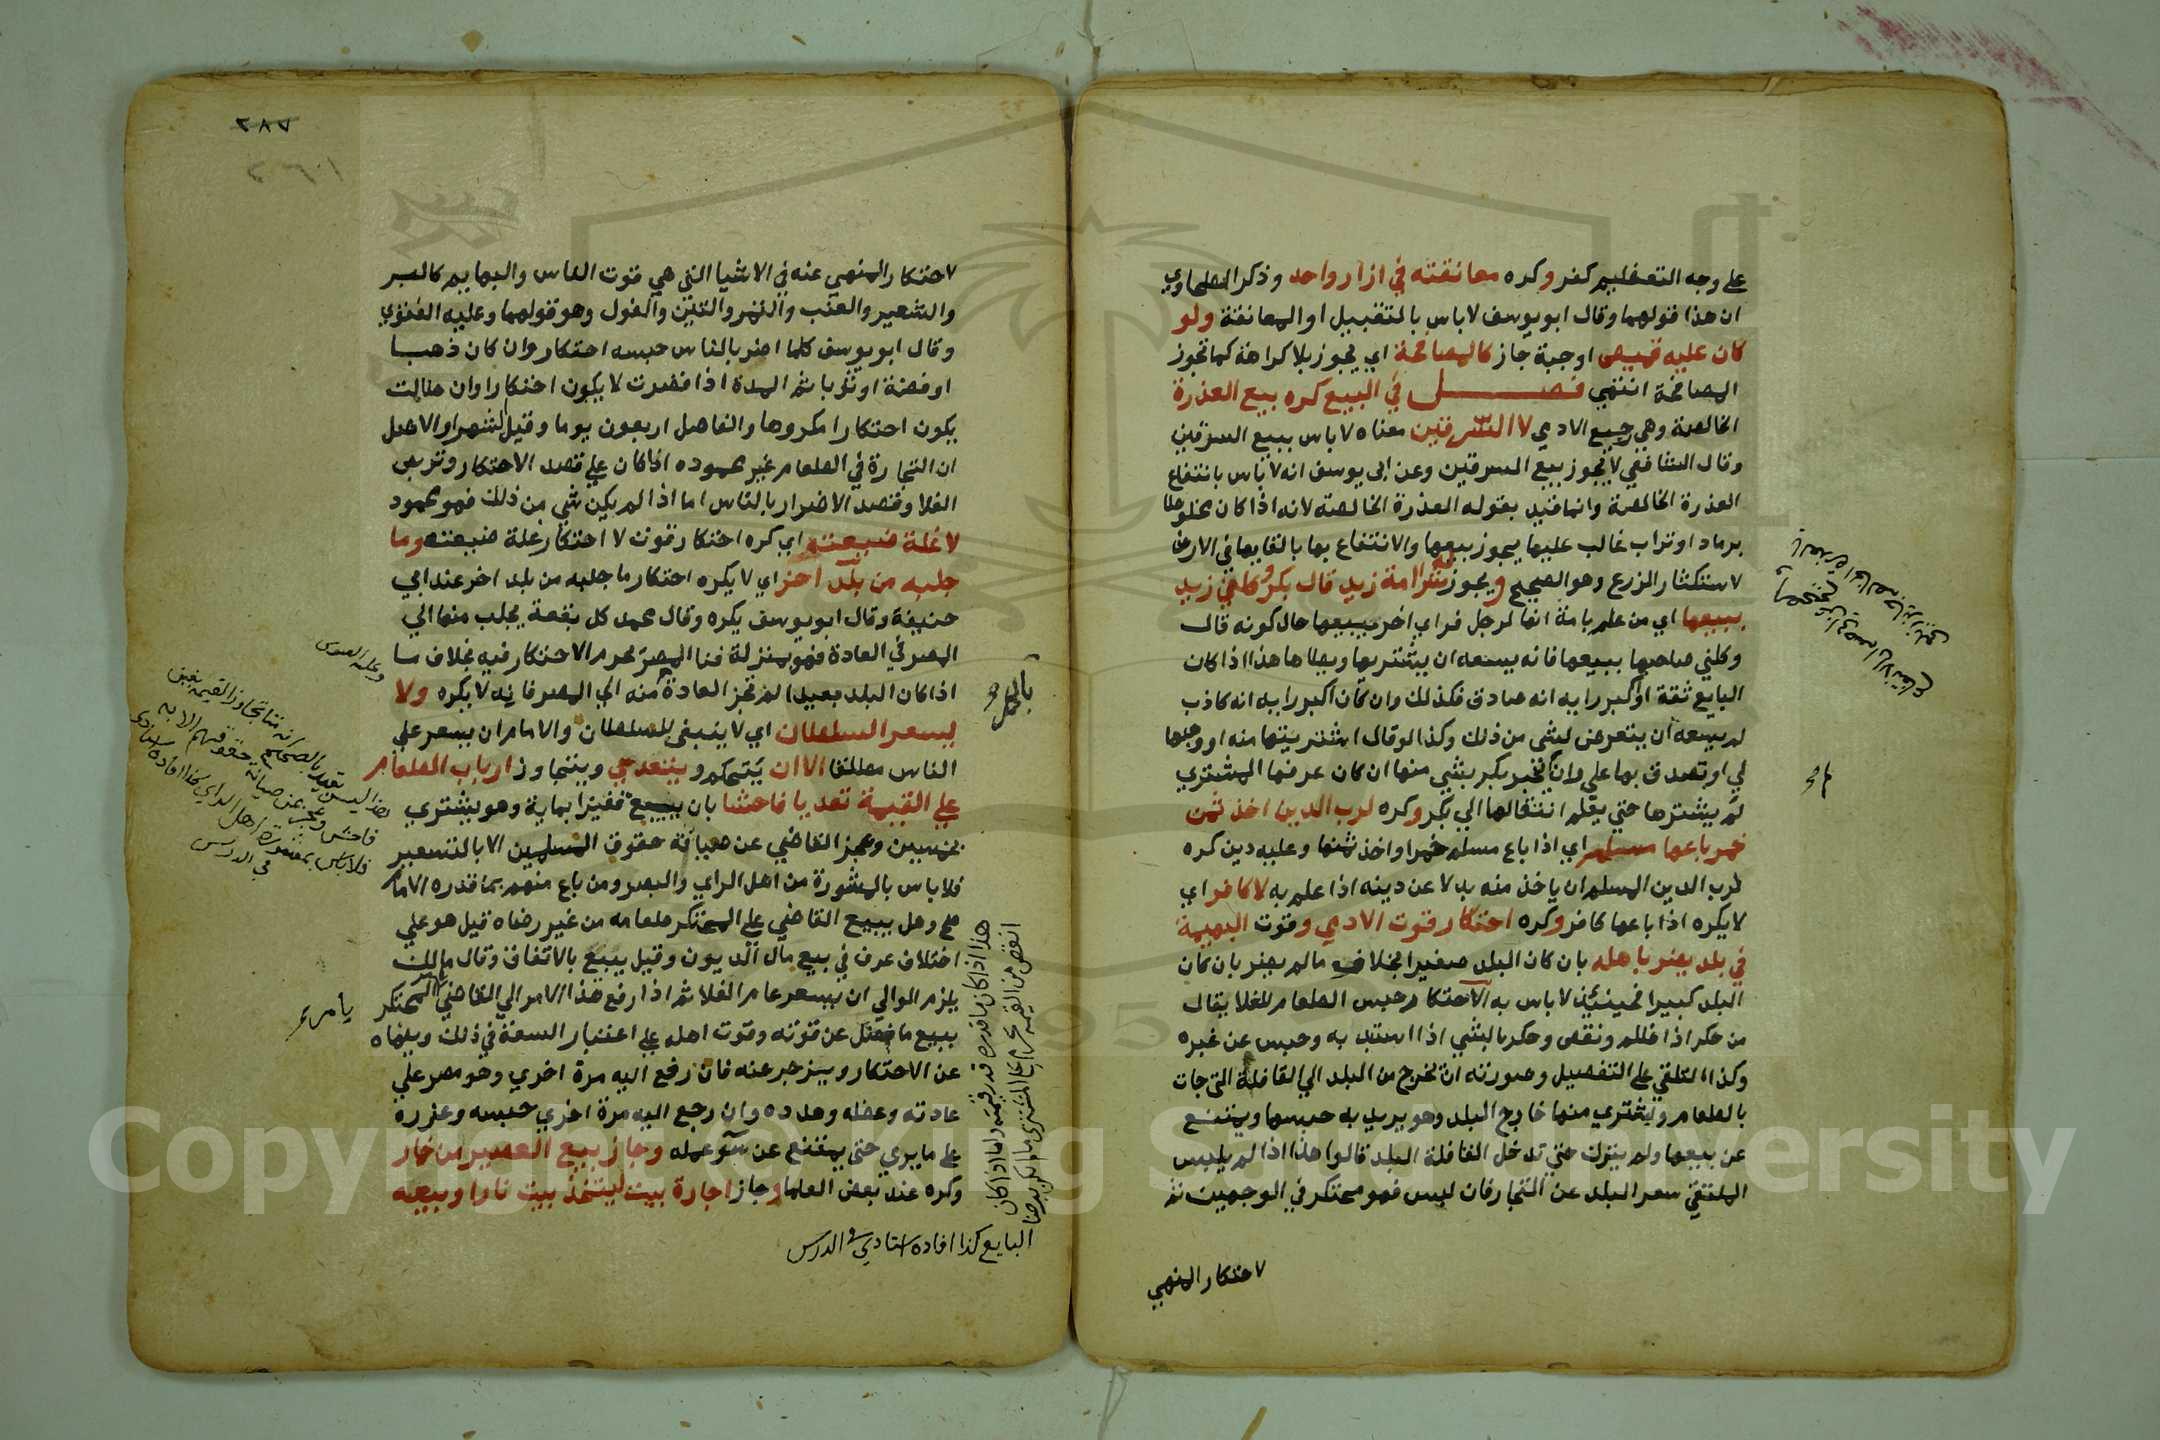 على وجه التعظيم كفر وكره معانقته في ازار واحد وذكر الطحاوي
ان هذا قولهما وقال ابو يوسف لا باس بالتقبيل او المعانقة ولو
كان عليه قميص او جبة جاز كالمصافحة اي يجوز بلا كراهة كما تجوز
المصافحة انتهي فصل في البيع كره بيع العذرة
الخالصة وهي رجيع الادمي لا السرقين معناه لا باس ببيع السرقين
وقال الشافعي لا يجوز بيع السرقين وعن ابي يوسف انه لا باس بانتفاع
العذرة الخالصة وانما قيد بقوله العذرة الخالصة لانه اذا كان مخلوطا
برماد او تراب غالب عليها يجوز بيعها والانتفاع بها بالقايها في الارض
لاستكثار الزرع وهو الصحيح ويجوز شراء امة زيد قال بكر وكلني زيد
ببيعها اي من علم بامة انها لرجل فراي اخر يبيعها حال كونه قال
وكلني صاحبها ببيعها فانه يسعه ان يشتريها ويطاها هذا اذا كان
البايع ثقة او اكبر رايه انه صادق فكذلك وان كان اكبر رايه انه كاذب
لم يسعه ان يتعرض لشي من ذلك وكذا لو قال اشتريتها منه او وهبها
لي او تصدق بها علي وان لم يخبر بكر بشي منها ان كان عرفها المشتري
لم يشترها حتي يعلم انتقالها الي بكر وكره لرب الدين اخذ ثمن
خمر باعها مسلم اي اذا باع مسلم خمرا واخذ ثمنها وعليه دين كره
لرب الدين المسلم ان ياخذ منه بدلا عن دينه اذا علم به لا كافر اي
لا يكره اذا باعها كافر وكره احتكار قوت الادمي وقوت البهيمة
في بلد يضر باهله بان كان البلد صغيرا بخلاف ما لم يضر بان كان
البلد كبيرا فحينئذ لا باس به الاحتكار حبس الطعام للغلا يقال
من حكر اذا ظلم ونقص وحكر بالشي اذا استبد به وحبس عن غيره
وكذا التلقي على التفصيل وصورته ان يخرج من البلد الي القافلة التي جات
بالطعام ويشتري منها خارج البلد وهو يريد به حبسها ويمتنع
عن بيعها ولم يترك حتي تدخل القافلة البلد قالوا هذا اذا لم يلبس
الملتقي سعر البلد عن التجار فان لبس فهو محتكر في الوجهين ثم
لاحتكار المنهي
٢٨٧
لاحتكار المنهي عنه في الاشيا التي هي قوت الناس والبهايم كالبر
والشعير والعنب والتمر والتين والفول وهو قولهما وعليه الفتوي
وقال ابو يوسف كلما اضر بالناس حبسه احتكار وان كان ذهبا
او فضة او ثوبا ثم المدة اذا قصرت لا يكون احتكارا وان طالت
يكون احتكارا مكروها والفاصل اربعون يوما وقيل الشهر والاصل
ان التجارة في الطعام غير محموده اذا كان علي قصد الاحتكار وتربص
الغلا وقصد الاضرار بالناس اما اذا لم يكن شي من ذلك فهو محمود
لا غلة ضيعته اي كره احتكار قوت لا احتكار غلة ضيعته وما
جلبه من بلد اخر اي لا يكره احتكار ما جلبه من بلد اخر عند ابي
حنيفة وقال ابو يوسف يكره وقال محمد كل بقعة يجلب منها الي
المصر في العادة فهو بمنزلة فنا المصر يحرم الاحتكار فيه بخلاف ما
اذا كان البلد بعيدا لم تجز العادة منه الي المصر فانه لا يكره ولا
يسعر السلطان اي لا ينبغي للسلطان والامام ان يسعر علي
الناس مطلقا الا ان يتحكم ويتعدي ويتجاوز ارباب الطعام
علي القيمة تعديا فاحشا بان يبيع قفيزا بماية وهو يشتري
بخمسين وعجز القاضي عن صيانة حقوق المسلمين الا بالتسعير
فلا باس بالمشورة من اهل الراي والبصر ومن باع منهم بما قدره الامام
صح وهل يبيع القاضي على المحتكر طعامه من غير رضاه قيل هو علي
اختلاف عرف في بيع مال المديون وقيل يبيع بالاتفاق وقال مالك
يلزم الوالي ان يسعر عام الغلا ثم اذا رفع هذا الامر الي القاضي يامر المحتكر
ببيع ما فضل عن قوته وقوت اهله على اعتبار السعة في ذلك وينهاه
عن الاحتكار ويزجر عنه فان رفع اليه مرة اخري وهو مصر علي
عادته وعظه وهدده وان رجع اليه مرة اخري حبسه وعزره
على ما يري حتي يمتنع عن سو عمله وجاز بيع العصير من خمار
وكره عند بعض العلما وجاز اجارة بيت ليتخذ بيت نار او بيعة
يامر
هذا اذا كان ما قدره قدر قيمته واما اذا كان
انقص من القيمة
البايع كذا افاده استادي في الدرس
Copyright © King Saud University